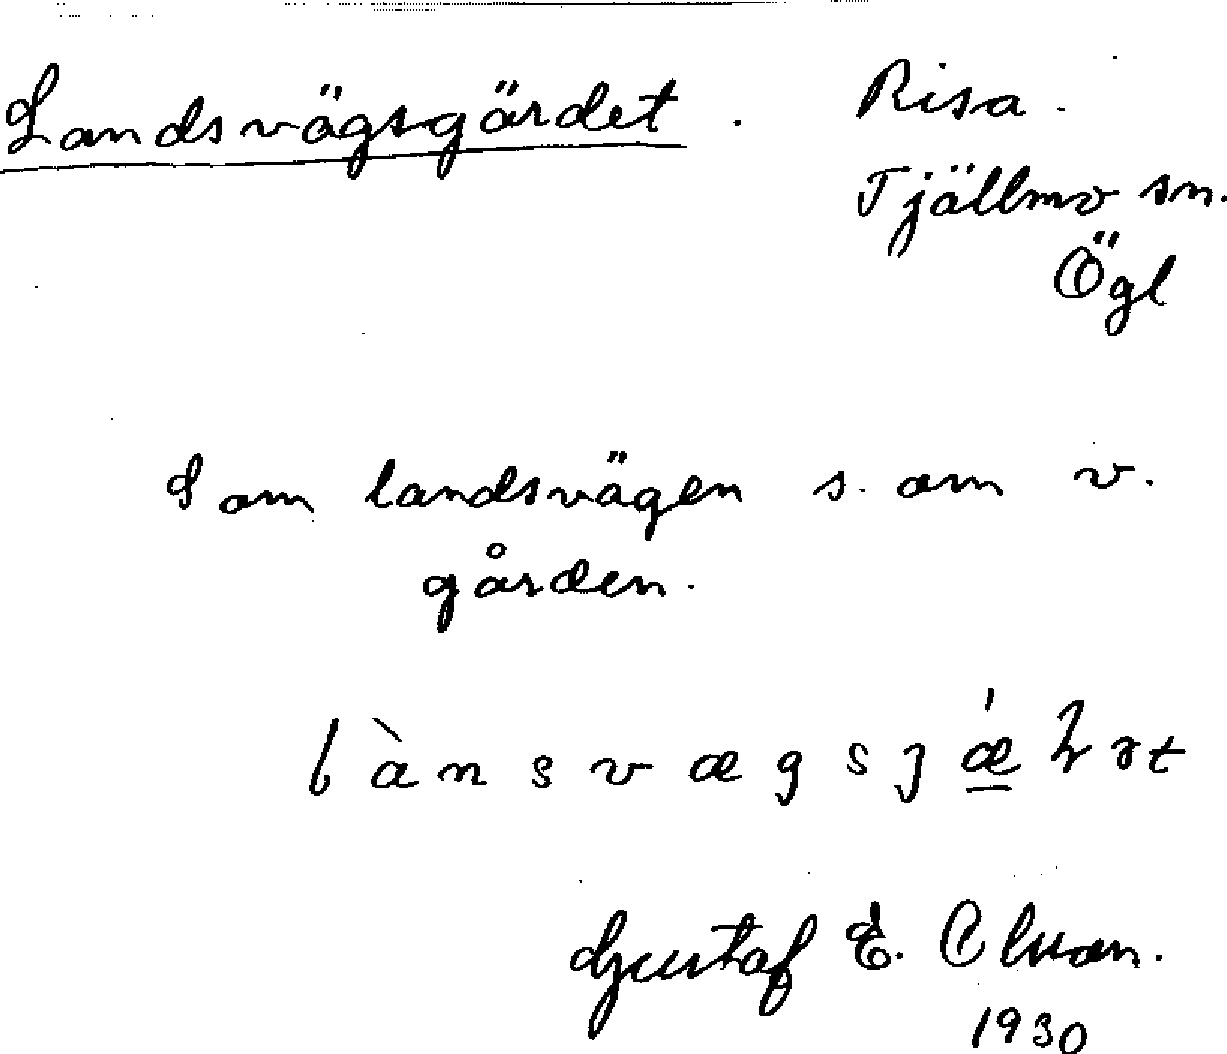 Landsvägsgärdet. Risa.
Tjällmo sn.
Ögl
I om landsvägen s. om v.
gården.
l à n s v æ g s j ǽ
Gustaf E.
1930